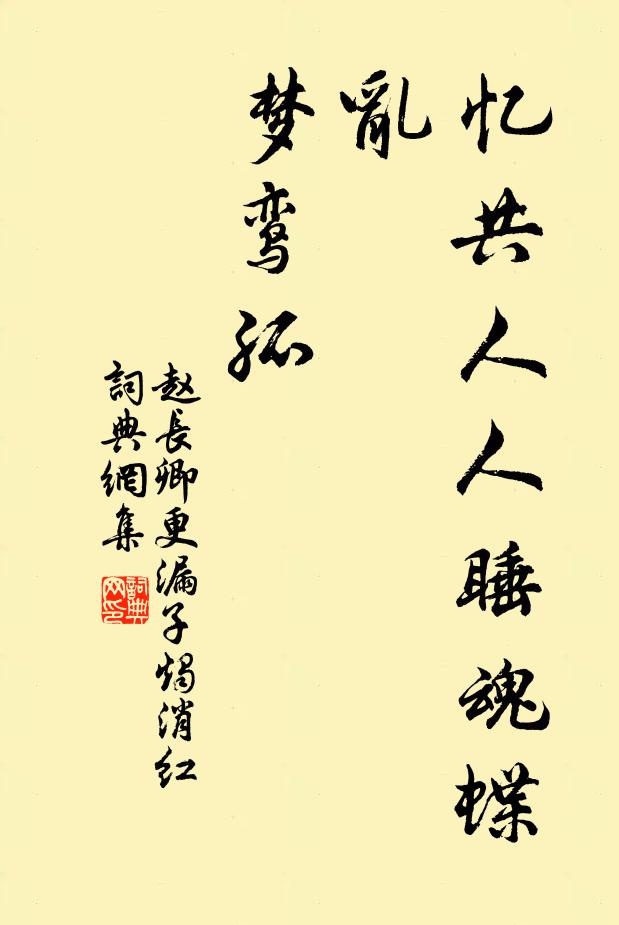 忆共人人睡魂蝶
亂
梦鸾孤
赵長卿更漏子烛消红
詞典網集
詞典网印